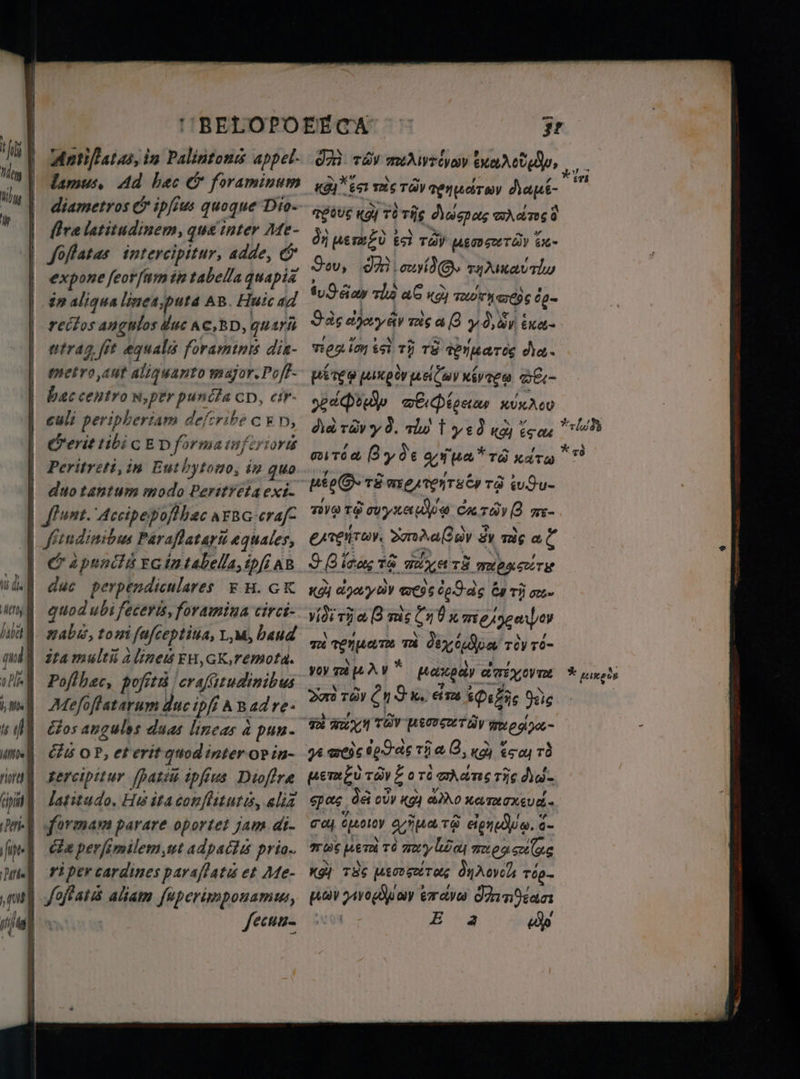 BELOPOEECA 31
Antistatas, in Palintonis appel-
lamus, Ad hæc & foraminum
diametros & ipsius quoque Dio-
stra latitudinem, quæ inter Me-
sostatas intercipitur, adde, &
expone seorsum in tabella quapiã
in aliqua linea, puta AB. Huic ad
rectos angulos duc AC, BD, quarũ
utraq; sit æqualis foraminis dia-
metro, aut aliquanto major. Post-
hac centro N, per puncta CD, cir-
culi peripheriam describe C E D,
& erit tibi C E D forma inferioris
Peritreti, in Euthytono, in quo
duo tantum modo Peritreta exi-
stunt. Accipe posthac AFBG craf-
fitudinibus Parastatarũ æquales,
& à punctis FG in tabella, ipsi AB
duc perpendiculares F H. G K
quod ubi feceris, foramina circi-
nabis, toni susceptiva, L, M, haud
ita multũ à lineis FH, GK, remota.
Posthæc, positis crassitudinibus
Mesostatarum duc ipsi A B ad re-
ctos angulos duas lineas à pun-
ctis O P, et erit quod inter OP in-
tercipitur spatiũ ipsius Diostræ
latitudo. His ita constitutis, aliã
formam parare oportet jam di-
cta persimilem, ut adpactis prio-
ri per cardines parastatis et Me-
sostatis aliam superimponamus,
secun-
ἀπὸ τῶν παλιντόνων ἐκαλοῦμεν,
καὶ* ἔστι τὰς τῶν τρημάτων διαμέ-
τρους καὶ τὸ τῆς διώστρας πλάτος ὃ
δὴ μεταξὺ ἐστὶ τῶν μεσοστατῶν ἔκ-
θου, ἐπὶ σανίδος τηλικαύτην
εὐθεῖαν τὴν αβ καὶ ταύτῃ πρὸς ὀρ-
θὰς ἀγαγεῖν τὰς α β γ δ, ὧν ἑκα-
τέρα ἴση ἐστὶ τῇ τοῦ τρήματος δια-
μέτρῳ μικρὸν μείζων κέντρῳ περι-
γράφομεν περιφέρειαν κύκλου
διὰ τῶν γ δ. τὴν † γ ε δ καὶ ἔσται
σοι τὸ α β γ δ ε σχῆμα* τῷ κάτω
μέρος τοῦ περιτρήτου ἐν τῷ εὐθυ-
τόνῳ τῷ συγκειμένῳ ἐκ τῶν β πε-
ριτρήτων. ἀπολαβὼν ἂν τὰς α ζ
θ β ἴσας τῷ πάχει τοῦ παραστάτου
καὶ ἀγαγὼν πρὸς ὀρθὰς ἐν τῇ σα-
νίδι τῇ α β τὰς ζ η θ κ περιγράψον
τὰ τρήματα τὰ δεχόμενα τὸν τό-
νον τὰ μ λ ν * μακρὰν ἀπέχοντα
ἀπὸ τῶν ζ η θ κ. εἶτα ἐφεξῆς θεὶς
τὰ πάχη τῶν μεσοστατῶν παράγα-
γε πρὸς ὀρθὰς τῇ α β, καὶ ἔσται τὸ
μεταξὺ τῶν ξ ο τὸ πλάτος τῆς διώ-
στρας. δεῖ οὖν καὶ ἄλλο κατασκευά-
σαι ὅμοιον σχῆμα τῷ εἰρημένῳ. ὅ-
πως μετὰ τὸ παγῆναι παραστάτας
καὶ τοὺς μεσοστάτας δηλονότι τόρ-
μων γινομένων ἐπάνω ἐπιτιθέασι
E 2 μὲν
* ἐπὶ
* τὴν
* τὸ
* μικρὸν